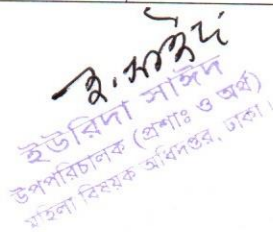 ই. সাঈদ
ইউরিদা সাঈদ
উপপরিচালক (প্রশাঃ ও অর্থ)
মহিলা বিষয়ক অধিদপ্তর, ঢাকা।